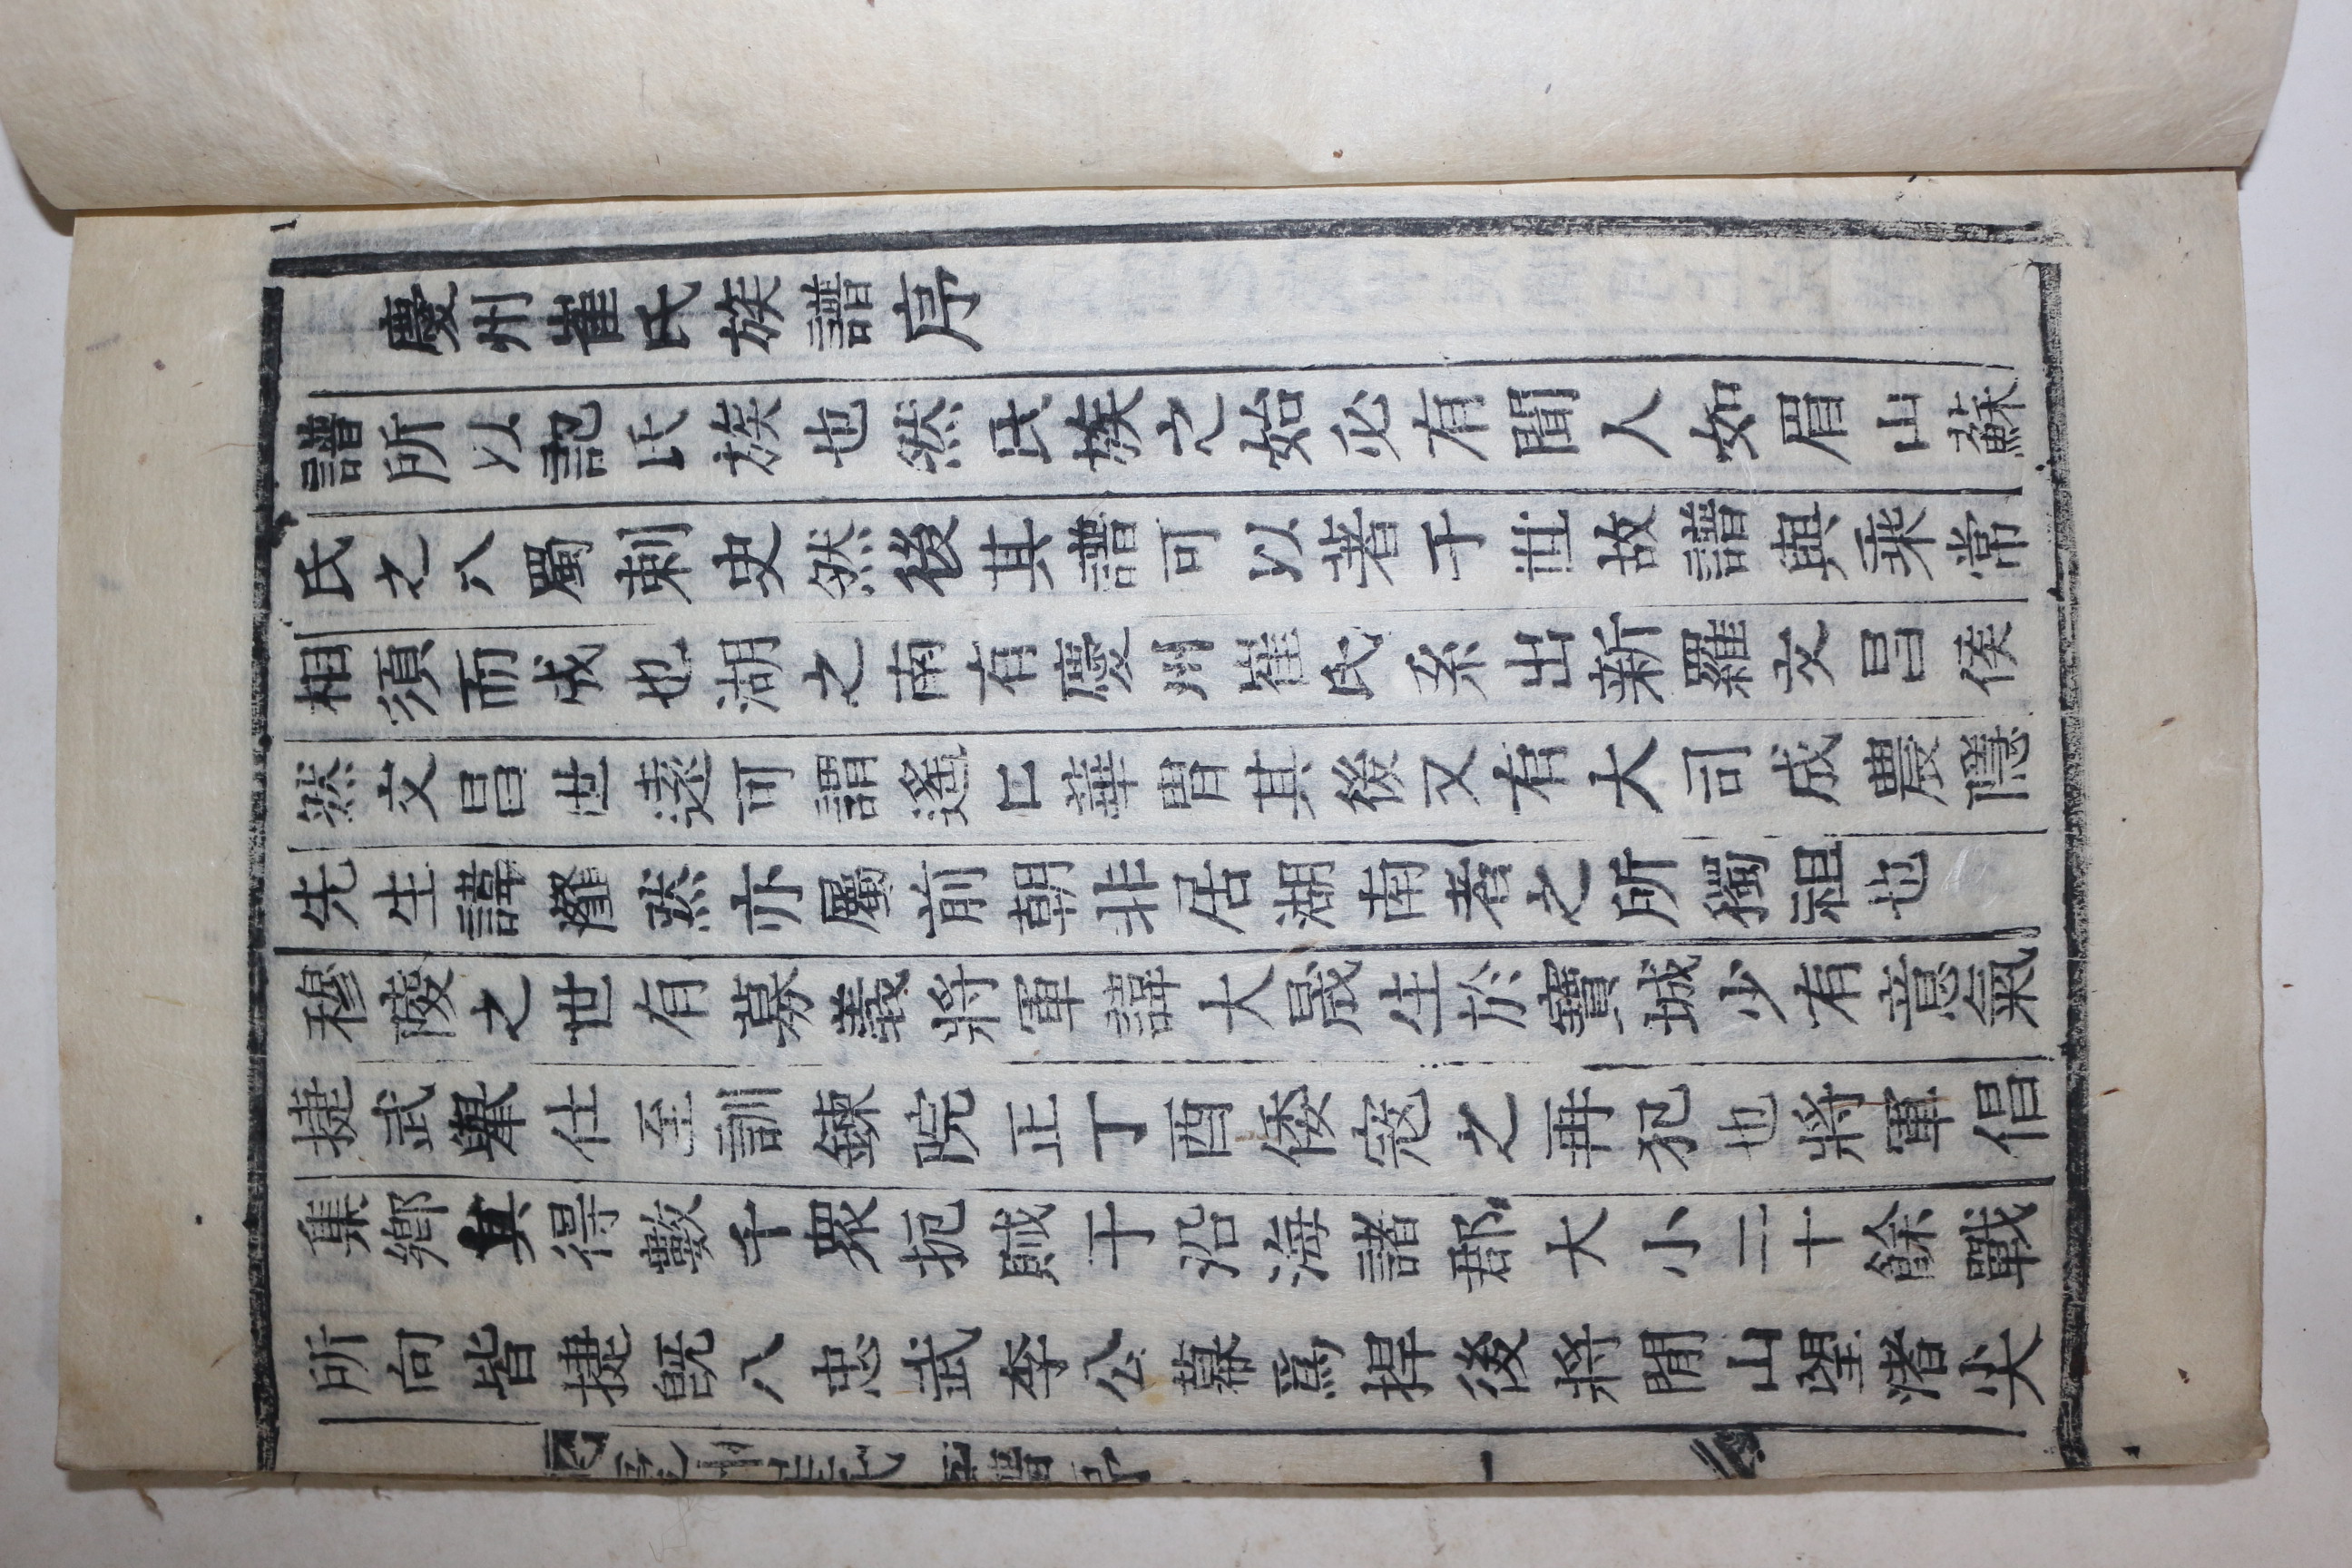 慶州崔氏族譜序
譜所以記氏族也然氏族之始必有聞人如眉山蘇
氏之八蜀刺史然後其譜可以著于世故譜與乘常
相須而成也湖之南有慶州崔氏系出新羅文昌侯
然文昌世遠可謂遙匚華胄其後又有大司成農隱
先生諱瀣然亦屬前朝非居湖南者之所獨祖也
穆陵之世有募義將軍諱大晟生於寶城少有意氣
捷武擧仕至訓鍊院正丁酉倭寇之再犯也將軍倡
集鄉其得數千衆扼賊于沿海諸郡大小二十餘戰
所向皆捷旣八忠武李公幕爲捍後將閒山望渚尖
慶州崔氏 譜序 一